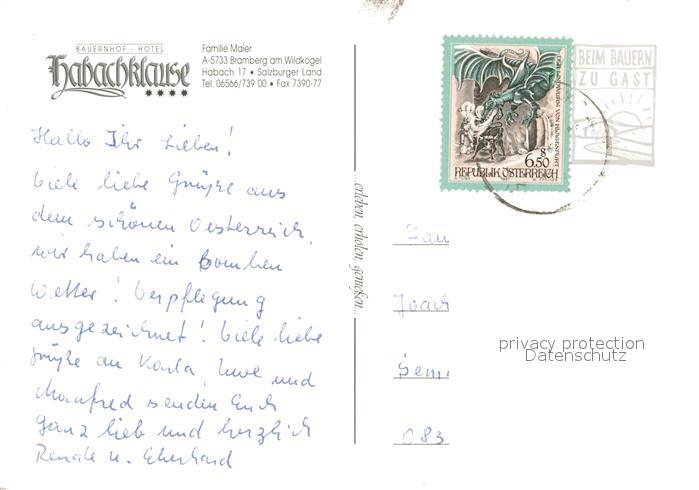 BAUERNHOF - HOTEL
Habachklause
Familie Maier
A-5733 Bramberg am Wildkogel
Habach 17 • Salzburger Land
Tel. 06566/739 00 • Fax 7390-77
Hallo Ihr Lieben!
Viele liebe Grüße aus
dem schönen Oesterreich,
wir haben ein Bomben
Wetter! Verpflegung
ausgezeichnet! Viele liebe
Grüße an Karla, Uwe und
Manfred senden Euch
ganz lieb und herzlich
Renate u. Eberhard
...erleben, erholen, genießen...
S
6.50
REPUBLIK ÖSTERREICH
BEIM BAUERN
ZU GAST
Fam
Joach
Sem
083
privacy protection
Datenschutz